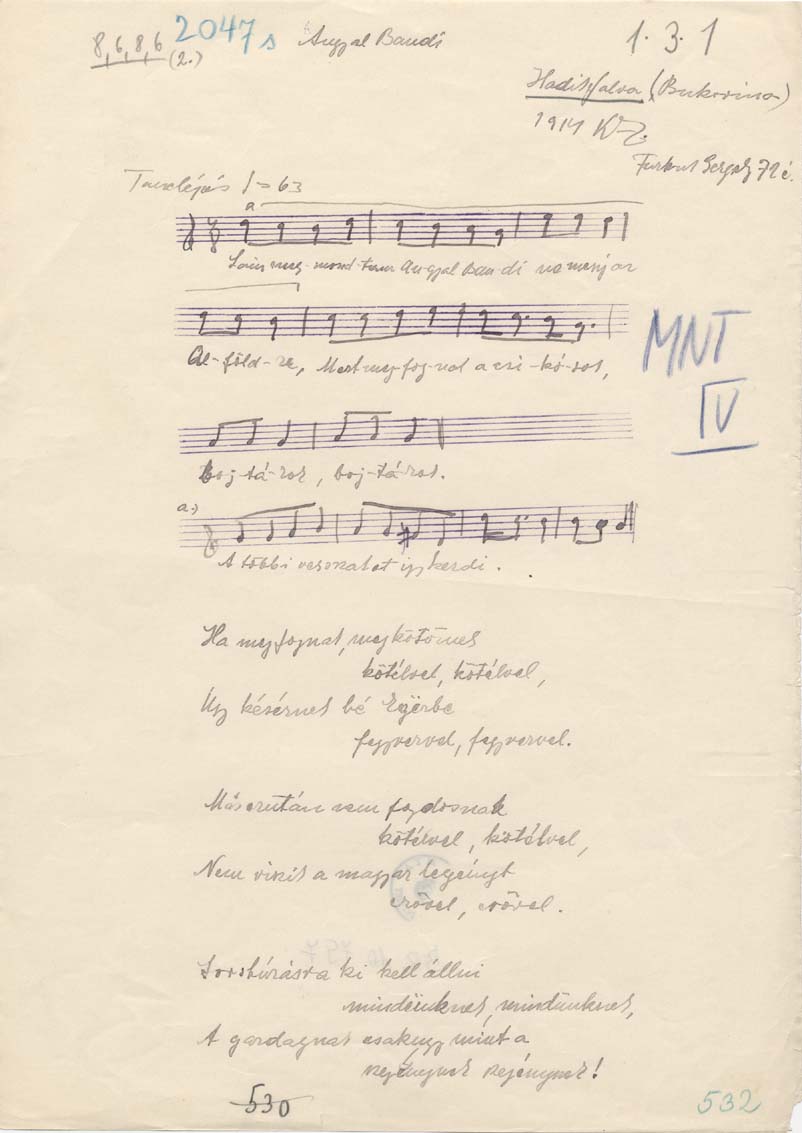 8, 6, 8, 6 2047s Angyal Bandi 1. 3. 1
(2.)
Hadikfalva (Bukovina)
1914 KZ.
72 é.
= 63
a
Lám megmond-tam An-gyal Ban-di ne menj az
Al-föld-re, Mert meg-fog-nak a csi-kó-sok,
boj-tá-rok, boj-tá-rok.
a.)
A többi versszakot így kezdi.
MNT
IV
Ha megfognak, megkötöznek
kötélvel, kötélvel,
Úgy késérnek bé Egërbe
fegyvervel, fegyvervel.
Máserután nem fogdosnak
kötélvel, kötélvel,
Nem viszik a magyar legényt
erővel, erővel.
Sorshúzásra ki kell állni
mindëniknek, mindëniknek,
A gazdagnak csakúgy mint a
szegénynek szegénynek!
530
532